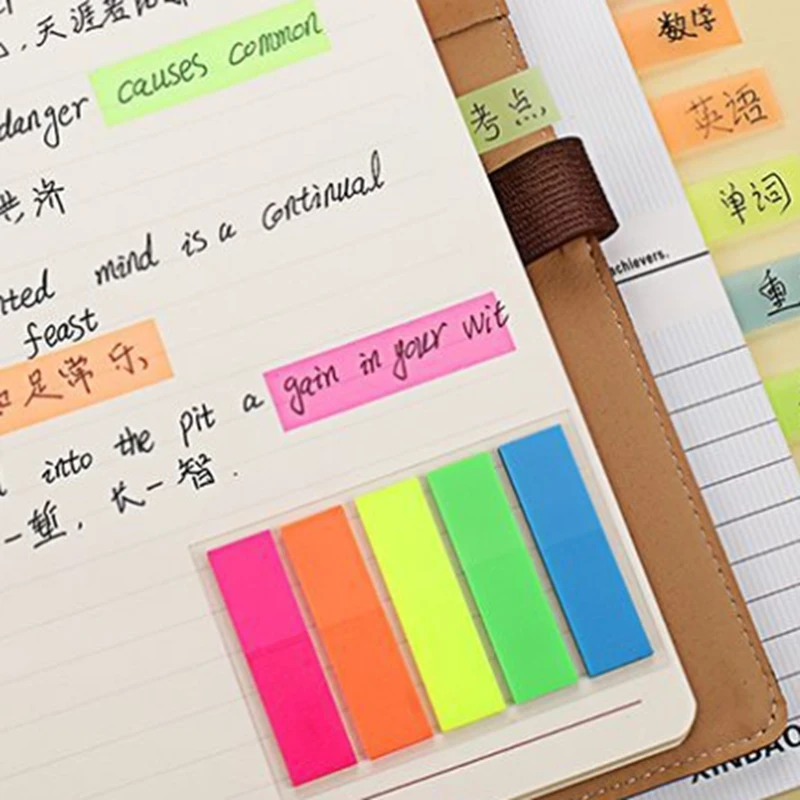 ，天涯若比邻
danger causes common
共济
mind is a continual
feast
足常乐
into the pit a gain in your wit
一堑，长一智.
考点
数学
英语
单词
重
achievers.
XINBAO